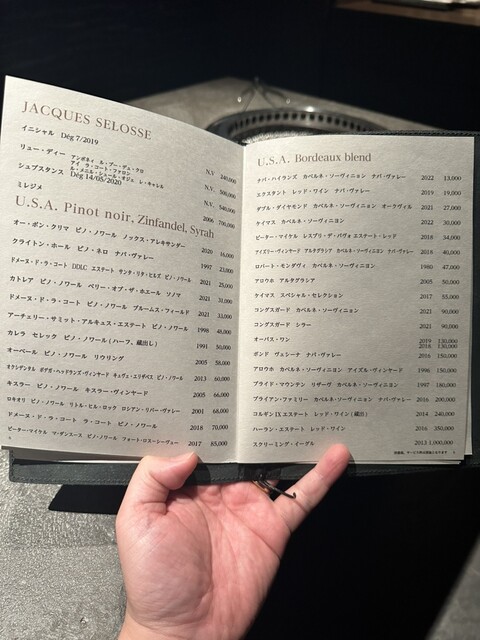 JACQUES SELOSSE
イニシャル Dég 7/2019 N.V 240,000
リュー・ディー アンボネイ ル・ブー・デュ・クロ
アイ ラ・コート・ファロン
ル・メニル・シュール・オジェ レ・キャレル N.V 506,000
シュブスタンス Dég 14/05/2020 N.V 540,000
ミレジメ 2006 700,000
U.S.A. Pinot noir, Zinfandel, Syrah
オー・ボン・クリマ ピノ・ノワール ノックス・アレキサンダー 2020 16,000
クライトン・ホール ピノ・ネロ ナパ・ヴァレー 1997 23,800
ドメーヌ・ド・ラ・コート DDLC エステート サンタ・リタ・ヒルズ ピノ・ノワール 2021 25,000
カトレア ピノ・ノワール ベリー・オブ・ザ・ホエール ソノマ 2021 31,000
ドメーヌ・ド・ラ・コート ピノ・ノワール ブルームス・フィールド 2021 33,000
アーチェリー・サミット・アルキュス・エステート ピノ・ノワール 1998 48,000
カレラ セレック ピノ・ノワール(ハーフ、蔵出し) 1991 50,000
オーベール ピノ・ノワール リウリング 2005 58,000
オクシデンタル ボデガ・ヘッドランズ・ヴィンヤード キュヴェ・エリザベス ピノ・ノワール 2013 60,000
キスラー ピノ・ノワール キスラー・ヴィンヤード 2005 66,000
ロキオリ ピノ・ノワール リトル・ヒル・ロック ロシアン・リバー・ヴァレー 2001 68,000
ドメーヌ・ド・ラ・コート ラ・コート ピノ・ノワール 2018 70,000
ピーター・マイケル マ・ダンスーズ ピノ・ノワール フォート・ロス・シーヴュー 2017 85,000
U.S.A. Bordeaux blend
ナパ・ハイランズ カベルネ・ソーヴィニヨン ナパ・ヴァレー 2022 13,000
エクスタント レッド・ワイン ナパ・ヴァレー 2019 19,000
ダブル・ダイヤモンド カベルネ・ソーヴィニヨン オークヴィル 2021 27,000
ケイマス カベルネ・ソーヴィニヨン 2022 30,000
ピーター・マイケル レスプリ・デ・パヴォ エステート・レッド 2018 34,000
アイズリー・ヴィンヤード アルタグラシア カベルネ・ソーヴィニヨン ナパ・ヴァレー 2018 40,000
ロバート・モンダヴィ カベルネ・ソーヴィニヨン 1980 47,000
アロウホ アルタグラシア 2005 50,000
ケイマス スペシャル・セレクション 2017 55,000
コングスガード カベルネ・ソーヴィニヨン 2021 90,000
コングスガード シラー 2021 90,000
オーパス・ワン 2019 130,000
2018 130,000
ボンド ヴェシーナ ナパ・ヴァレー 2016 150,000
アロウホ カベルネ・ソーヴィニヨン アイズル・ヴィンヤード 1996 150,000
プライド・マウンテン リザーヴ カベルネ・ソーヴィニヨン 1997 180,000
ブライアン・ファミリー カベルネ・ソーヴィニヨン ナパ・ヴァレー 2016 200,000
コルギン IX エステート レッド・ワイン(蔵出) 2014 240,000
ハーラン・エステート レッド・ワイン 2016 350,000
スクリーミング・イーグル 2013 1,000,000